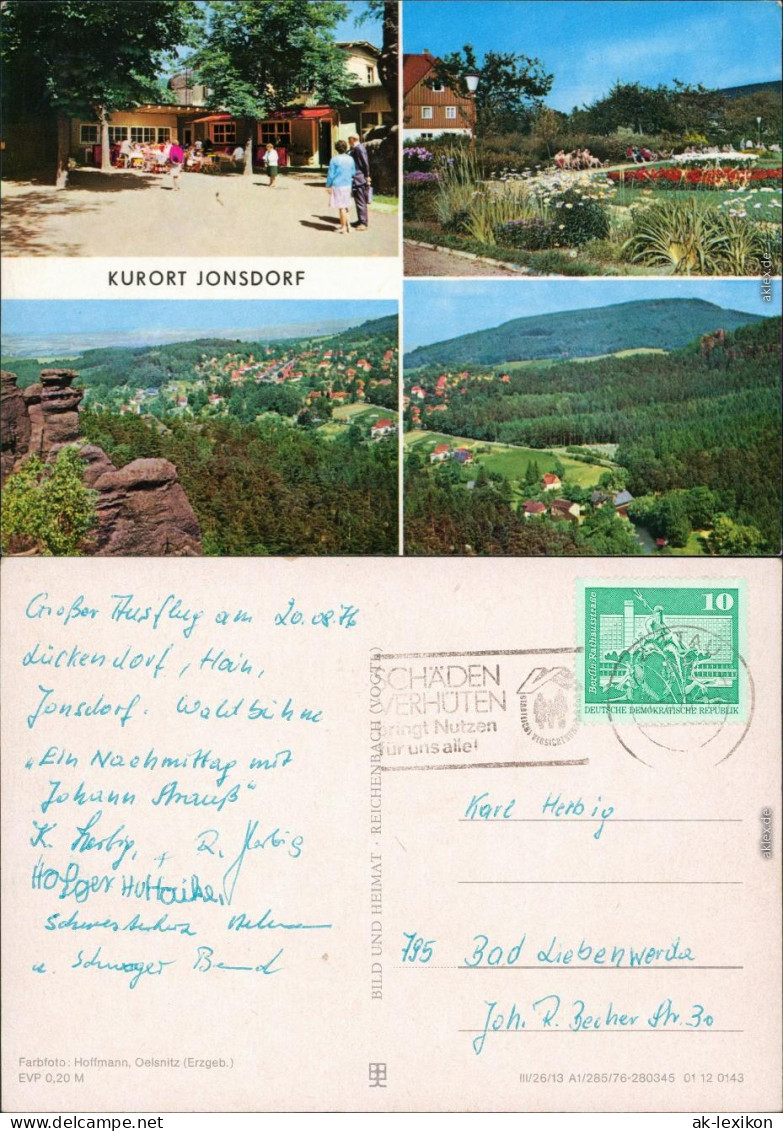 KURORT JONSDORF
aklex.de
Großer Ausflug am 20.08.76
Lückendorf, Hain,
Jonsdorf. Waldbühne
„Ein Nachmittag mit
Johann Strauß"
K. Herbig, + R. Herbig
Holger
u. Schwager Bernd
SCHÄDEN
VERHÜTEN
bringt Nutzen
für uns alle!
Berlin Rathausstraße
10
DEUTSCHE DEMOKRATISCHE REPUBLIK
BILD UND HEIMAT · REICHENBACH (VOGTL)
Karl Herbig
795 Bad Liebenwerda
Joh. R. Becher Str. 30
aklex.de
Farbfoto: Hoffmann, Oelsnitz (Erzgeb.)
EVP 0,20 M
III/26/13 A1/285/76-280345 01 12 0143
www.ak-ansichtskarten.de
ak-lexikon